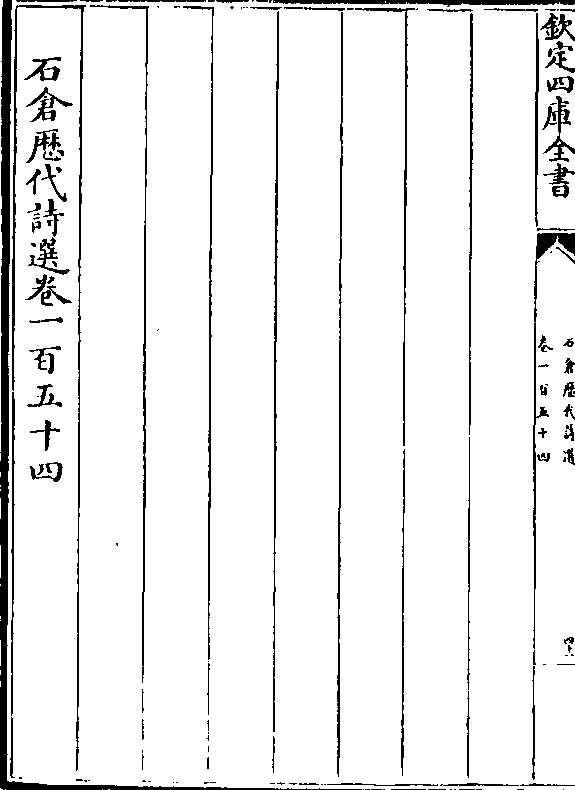 欽定四庫全書
石倉歷代詩選
卷一百五十四
石倉歷代詩選卷一百五十四